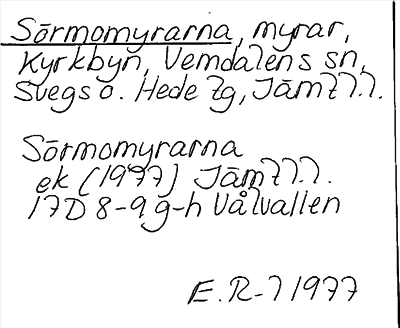 Sörmomyrarna, myrar,
Kyrkbyn, Vemdalens sn,
Svegs o. Hede tg, Jämtl.l.
Sörmomyrarna
ek (1977) Jämtl.l.
17D 8-9 g-h Vålvallen
E.R-l 1977